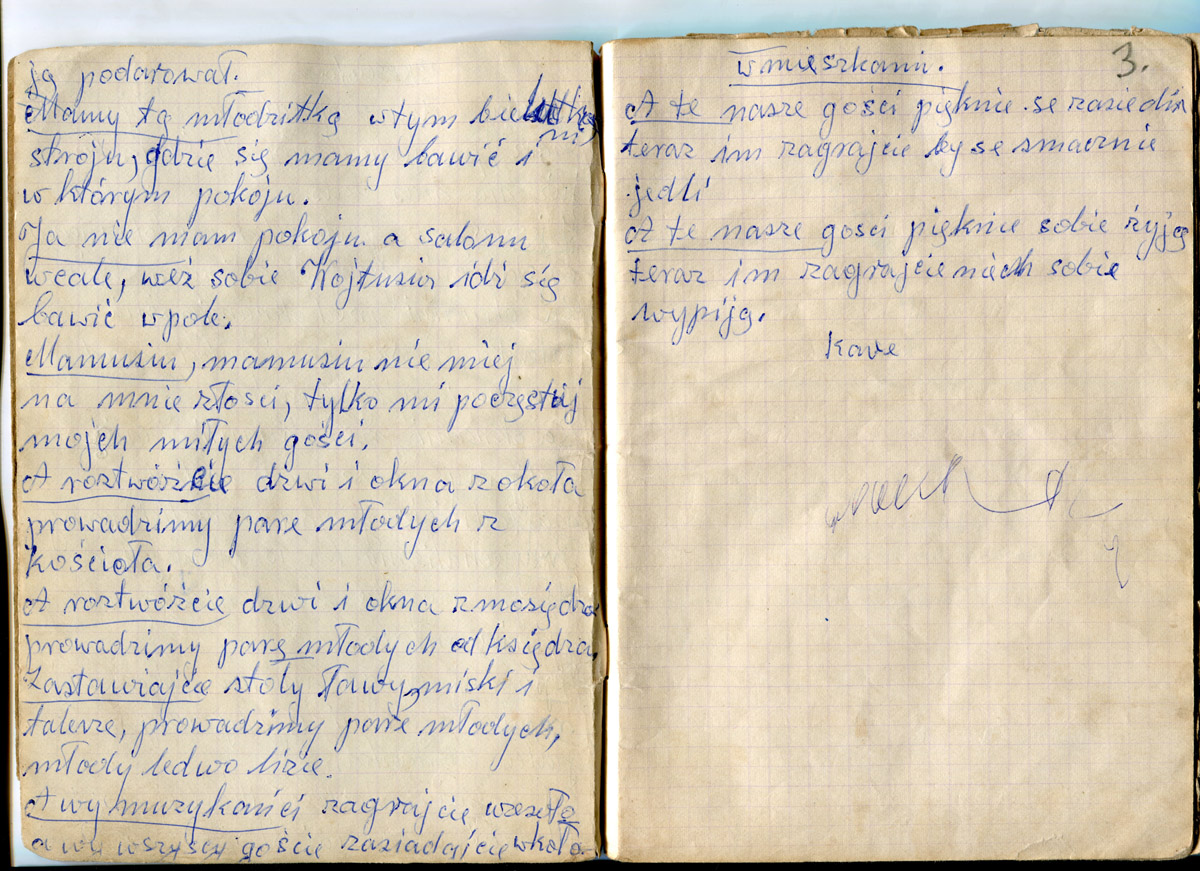 ją podarował.
Mamy tą młodzitką w tym
stroju, gdzie się mamy bawić i
w którym pokoju.
Ja nie mam pokoju a salonu
wcale, weź sobie Wojtusia idź się
bawić w pole.
Mamusiu, mamusiu nie miej
na mnie złości, tylko mi poczęstuj
mojch miłych gości.
A roztwórzcie drzwi i okna z okoła
prowadzimy parę młodych z
kościoła.
A roztwórzcie drzwi i okna z mosiędza
prowadzimy parę młodych od księdza.
Zastawiajcie stoły ławy, miski i
talerze, prowadzimy parę młodych,
młody ledwo lizie.
A wy muzykańci zagrajcie wesoło
a wy wszyscy goście zasiadajcie wkoło
3.
w mięszkaniu.
A te nasze gości pięknie se zasiedli
teraz im zagrajcie by se smacznie
jedli
A te nasze gości pięknie sobie żyją
teraz im zagrajcie niech sobie
wypiją.